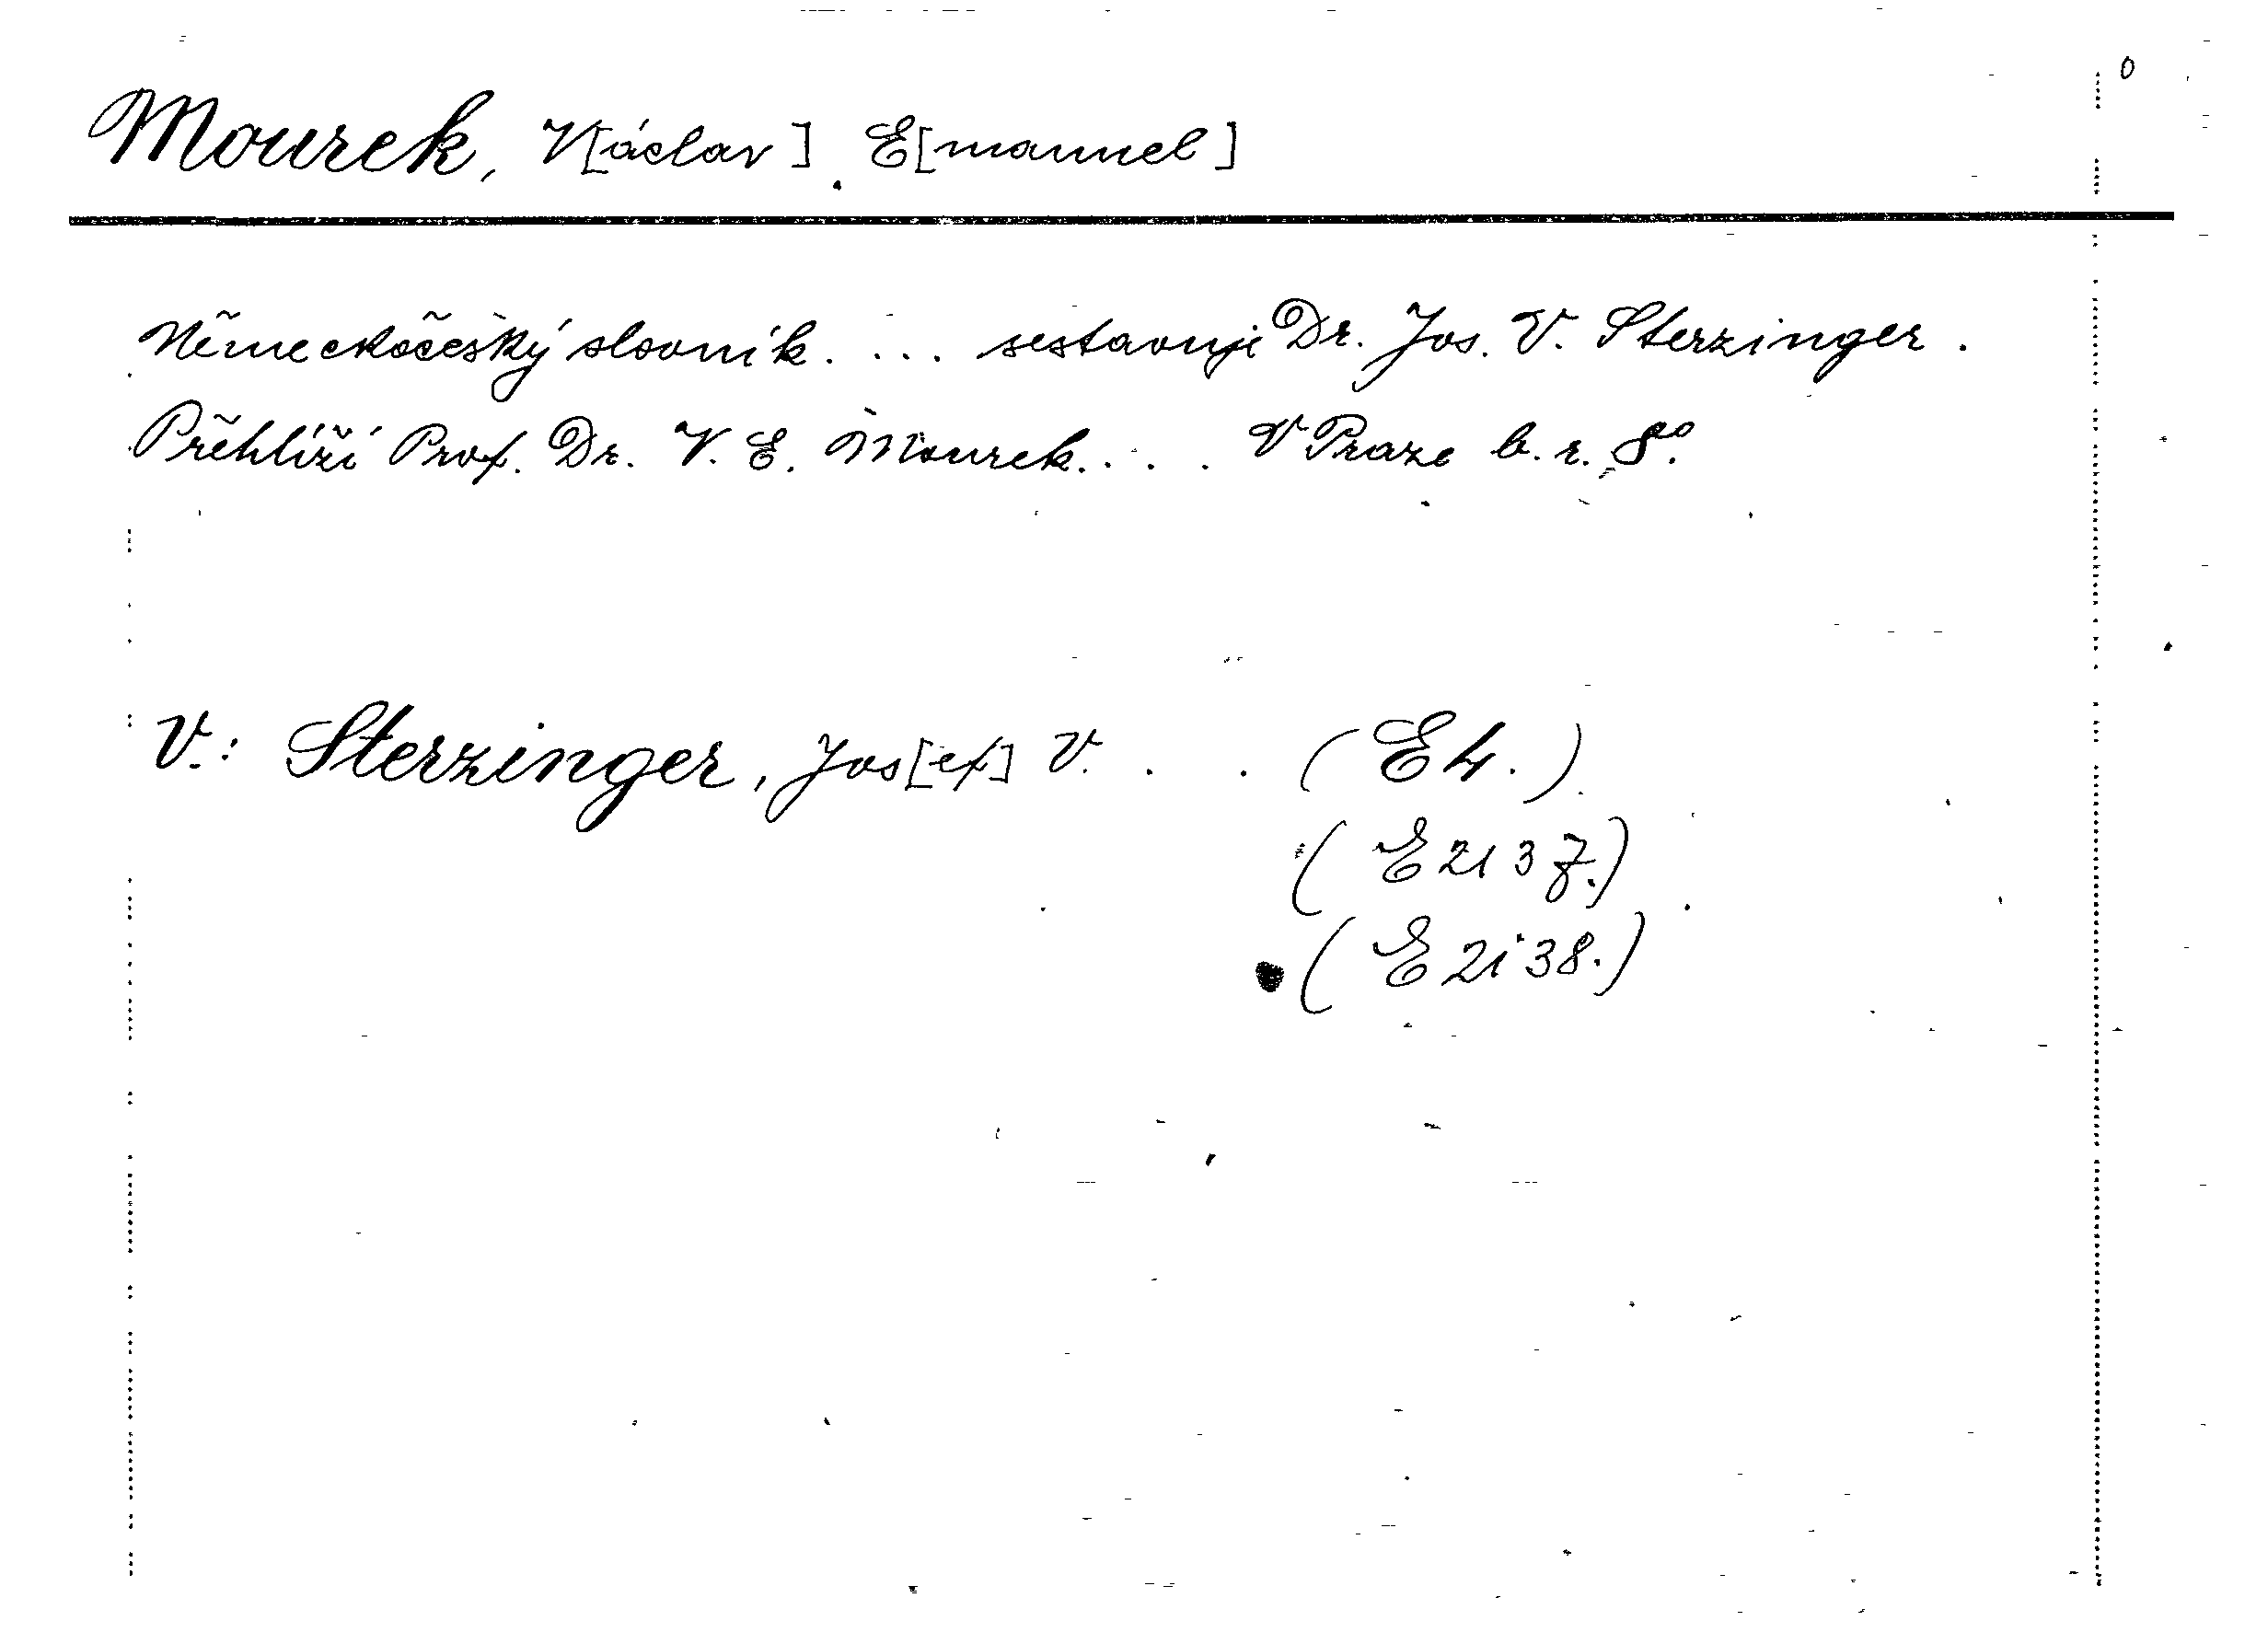 Mourek, V[áclav] E[manuel]
Německočeský slovník. ... sestavuje Dr. Jos. V. Sterzinger.
Přehlíží Prof. Dr. V. E. Mourek. ... V Praze b. r. 8º.
V.: Sterzinger, Jos[ef] V. . . (E 4.)
(E 2137.)
(E 2138.)